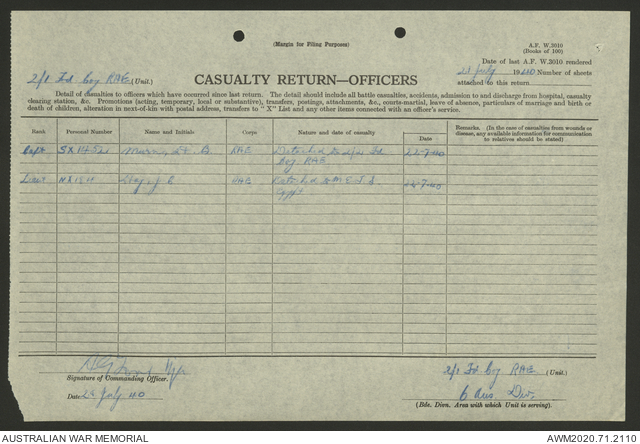 (Margin for Filing Purposes)
A.F. W.3010
(Books of 100)
Date of last A.F. W.3010 rendered
2/1 Fd Coy RAE (Unit.)
CASUALTY RETURN—OFFICERS
21 July 1940 Number of sheets
attached to this return
Detail of casualties to officers which have occurred since last return. The detail should include all battle casualties, accidents, admission to and discharge from hospital, casualty
clearing station, &c. Promotions (acting, temporary, local or substantive), transfers, postings, attachments, &c., courts-martial, leave of absence, particulars of marriage and birth or
death of children, alteration in next-of-kin with postal address, transfers to "X" List and any other items connected with an officer's service.
Rank Personal Number Name and Initials Corps Nature and date of casualty Date Remarks. (In the case of casualties from wounds or
disease, any available information for communication
to relatives should be stated)
Capt B. RAE Fd 22-7-40
Coy RAE
Lieut RAE 22-7-40
Egypt
Signature of Commanding Officer.
2/1 Fd Coy RAE (Unit.)
Date July 40
6 Aus Div.
(Bde. Divn. Area with which Unit is serving).
AUSTRALIAN WAR MEMORIAL
AWM2020.71.2110